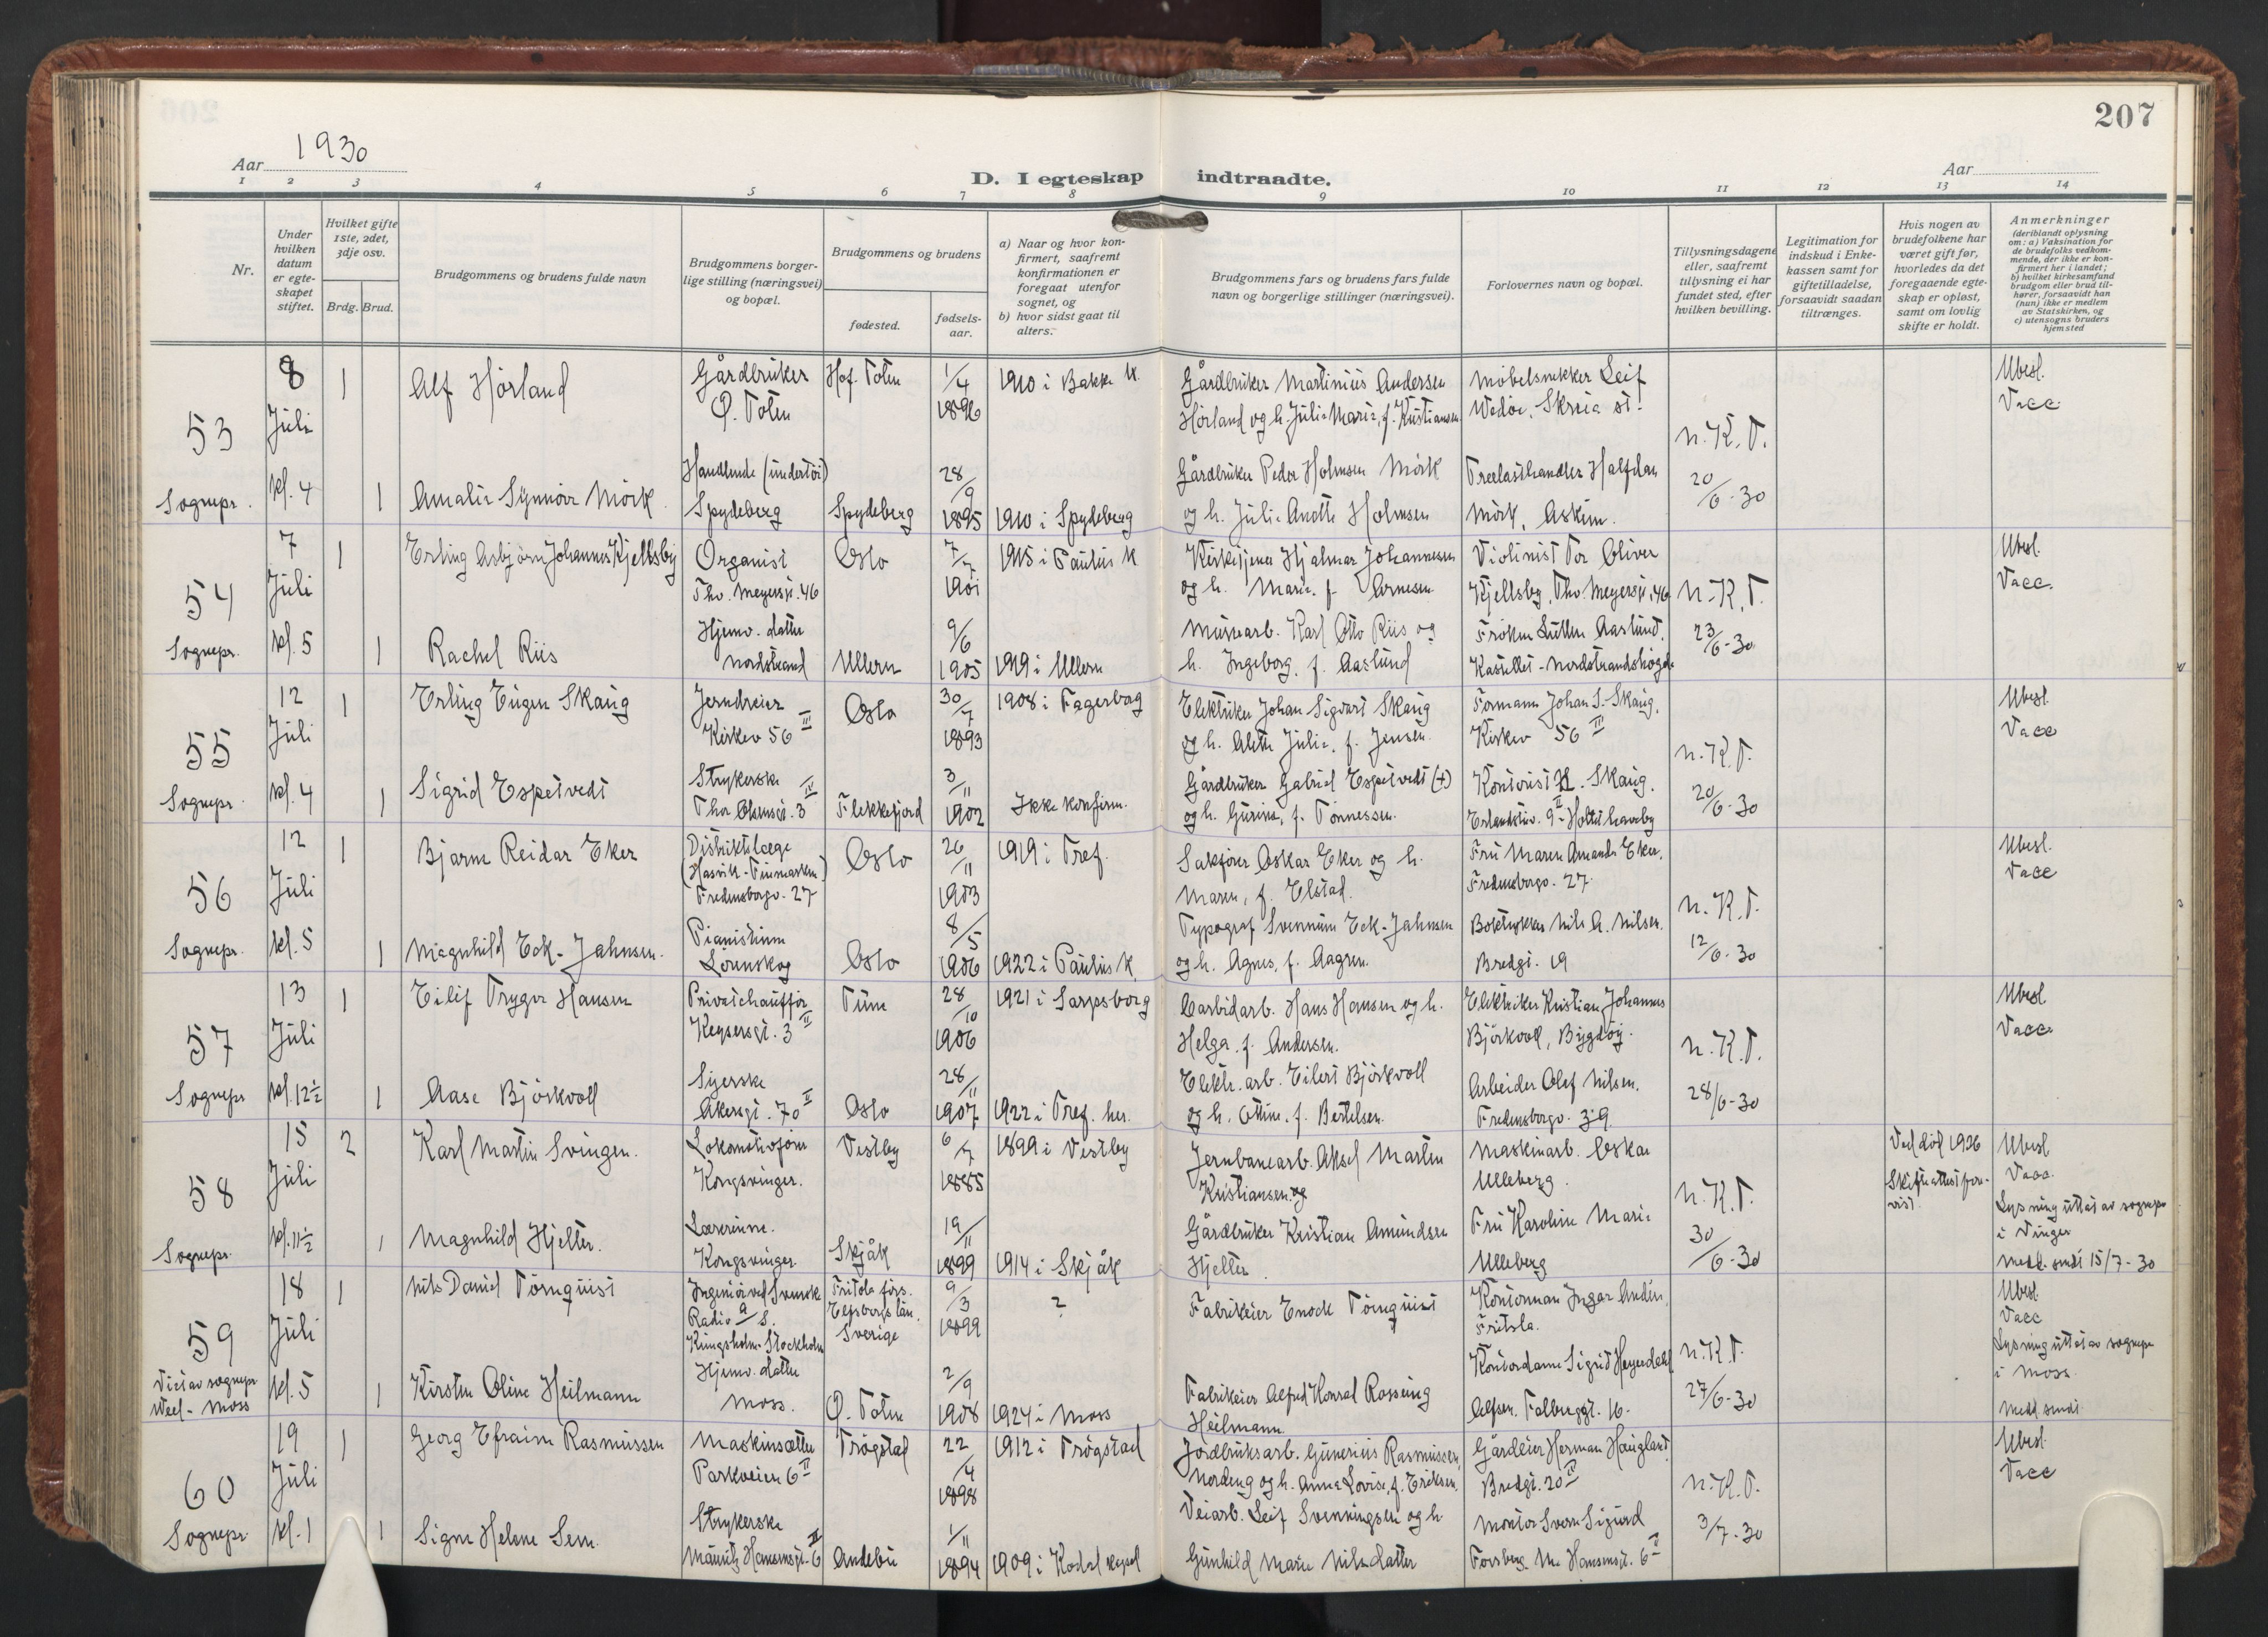 207
Aar 1930
D. I egteskap indtraadte.
Aar
1 2 3 4 5 6 7 8 9 10 11 12 13 14
Nr.
Under hvilken datum er egteskapet stiftet.
Hvilket gifte 1ste, 2det, 3dje osv.
Brdg. Brud.
Brudgommens og brudens fulde navn
Brudgommens borgerlige stilling (næringsvei) og bopæl.
Brudgommens og brudens
fødested.
fødselsaar.
a) Naar og hvor konfirmert, saafremt konfirmationen er foregaat utenfor sognet, og
b) hvor sidst gaat til alters.
Brudgommens fars og brudens fars fulde navn og borgerlige stillinger (næringsvei).
Forlovernes navn og bopæl.
Tillysningsdagene eller, saafremt tillysning ei har fundet sted, efter hvilken bevilling.
Legitimation for indskud i Enkekassen samt for giftetilladelse, forsaavidt saadan tiltrænges.
Hvis nogen av brudefolkene har været gift før, hvorledes da det foregaaende egteskap er opløst, samt om lovlig skifte er holdt.
Anmerkninger (deriblandt oplysning om: a) Vaksination for de brudefolks vedkommende, der ikke er konfirmert her i landet; b) hvilket kirkesamfund brudgom eller brud tilhører, forsaavidt han (hun) ikke er medlem av Statskirken, og c) utensogns bruders hjemsted
53 Sognepr.
8 Juli kl. 4
1 Alf Hörland
Gårdbruker Ö. Toten
Hof. Toten
1/4 1896
1910 i Bakke K.
Gårdbruker Martinius Andersen Hörland og h. Julie Marie, f. Kristiansen
Möbelsnekker Leif Wedöe, Skreia st.
1 Amalie Synnöve Mörk
Handlende (undertöi) Spydeberg
Spydeberg
28/9 1895
1910 i Spydeberg
Gårdbruker Peder Holmsen Mörk og h. Julie Anette Holmsen
Trælasthandler Halfdan Mörk, Askim.
n. K. T. 20/6-30
Ubesl. Vacc.
54 Sognepr.
7 Juli kl. 5
1 Erling Asbjörn Johannes Kjellsby
Organist Thv. Meyersgt. 46
Oslo
7/7 1901
1915 i Paulus K
Kirketjener Hjalmar Johannesen og h. Marie f. Arnesen
Violinist Tor Oliver Kjellsby, Thv. Meyersgt. 46
1 Rachel Riis
Hjemv. datter Nordstrand
Ullern
9/6 1905
1919 i Ullern
Murearb. Karl Otto Riis og h. Ingeborg, f. Aaslund
Fröken Aaslund, Kastellet - Nordstrandshögda
n. K. T. 23/6-30
Ubesl. Vacc.
55 Sognepr.
12 Juli kl. 4
1 Erling Eugen Skaug
Jerndreier Kirkev 56 III
Oslo
30/7 1893
1908 i Fagerborg
Elektriker Johan Sigvart Skaug og h. Alette Julie, f. Jensen.
Formann Johan S. Skaug, Kirkev 56 III
1 Sigrid Espetvedt
Strykerske Thor Olsensgt. 3 IV
Flekkefjord
3/11 1902
Ikke konfirm.
Gårdbruker Gabriel Espetvedt (+) og h. Gurine, f. Tönnessen.
Kontorist R. Skaug.
n. K. T. 20/6-30
Ubesl. Vacc
56 Sognepr.
12 Juli kl. 5
1 Bjarne Reidar Eker
Distriktslæge (Hasvik - Finmarken) Fredensborgv. 27
Oslo
26/11 1903
1919 i Tref.
Sakförer Oskar Eker og h. Maren, f. Elstad.
Fru Maren Amanda Eker, Fredensborgv. 27.
1 Magnhild Eek-Jahnsen.
Pianistinne Lörenskog
Oslo
8/5 1906
1922 i Paulus K.
Typograf Svennum Eek-Jahnsen og h. Agnes, f. Aagren.
Boktrykker Nils A. Nilsen. Bredgt. 19
n. K. T. 12/6-30
Ubesl. Vacc
57 Sognepr
13 Juli kl. 12½
1 Eilif Trygve Hansen
Privatchauffør Keysersgt. 3 II
Tune
28/10 1906
1921 i Sarpsborg
Carbidarb. Hans Hansen og h. Helga, f. Andersen.
Elektriker Kristian Johannes Björkvoll, Bygdöy.
1 Aase Björkvoll
Syerske Akersgt. 70 II
Oslo
28/11 1907
1922 i Tref. her.
Elektr. arb. Eilert Björkvoll og h. Ottine, f. Bertelsen.
Arbeider Olaf Nilsen. Fredensborgv. 39.
n. K. T. 28/6-30
Ubesl Vacc.
58 Sognepr.
15 Juli kl. 11½
2 Karl Martin Svingen.
Lokomotivförer Kongsvinger.
Vestby
6/7 1885
1899 i Vestby
Jernbanearb. Aksel Marten Kristiansen og
Maskinarb. Oskar Ulleberg.
1 Magnhild Hjelter.
Lærerinne. Kongsvinger.
Skjåk
19/11 1899
1914 i Skjåk
Gårdbruker Kristian Amundsen Hjelter.
Fru Karoline Marie Ulleberg
n. K. T. 30/6-30
Ved död 1926 Skifteattest forevist.
Ubesl Vacc. Lysning uttat av sognepr i Vinger Medd. sendt 15/7-30
59 Viet av sognepr Weel - Moss
18 Juli kl. 5
1 Nils Daniel Törnquist
Ingeniör ved Svensk Radio a/s. Kungsholm. Stockholm
Fritsla förs. Elfsborgs län. Sverige
9/3 1899
?
Fabrikeier Enock Törnquist
Kontorman Ingar Andén, Fritsla.
1 Kirsten Oline Heilmann
Hjemv. datter Moss.
Ö. Toten
2/9 1908
1924 i Moss
Fabrikeier Alfred Konrad Rasseing Heilmann
Kontordame Sigrid Heyerdahl Alfsen. Falbergsgt. 16.
n. K. T. 27/6-30
Ubesl Vacc Lysning uttat av sognepr i Moss. Medd. sendt
60 Sognepr
19 Juli kl. 1
1 Georg Efraim Rasmussen
Maskinsætter Parkveien 6 II
Trögstad
22/4 1898
1912 i Trögstad
Jordbruksarb. Gunerius Rasmussen, Nordeng og h. Anna Lovise, f. Eriksen.
Gårdeier Herman Haugland, Bredgt. 20 II
1 Signe Helene Sem.
Strykerske Mauritz Hansensgt. 6 II
Andebu
1/11 1894
1909 i Kodal kapel
Veiarb. Leif Svenningsen og h Gunhild Marie Nilsdatter
Montör Svern Sigurd Forsberg M. Hansensgt. 6 II
n. K. T. 3/7-30
Ubesl. Vacc